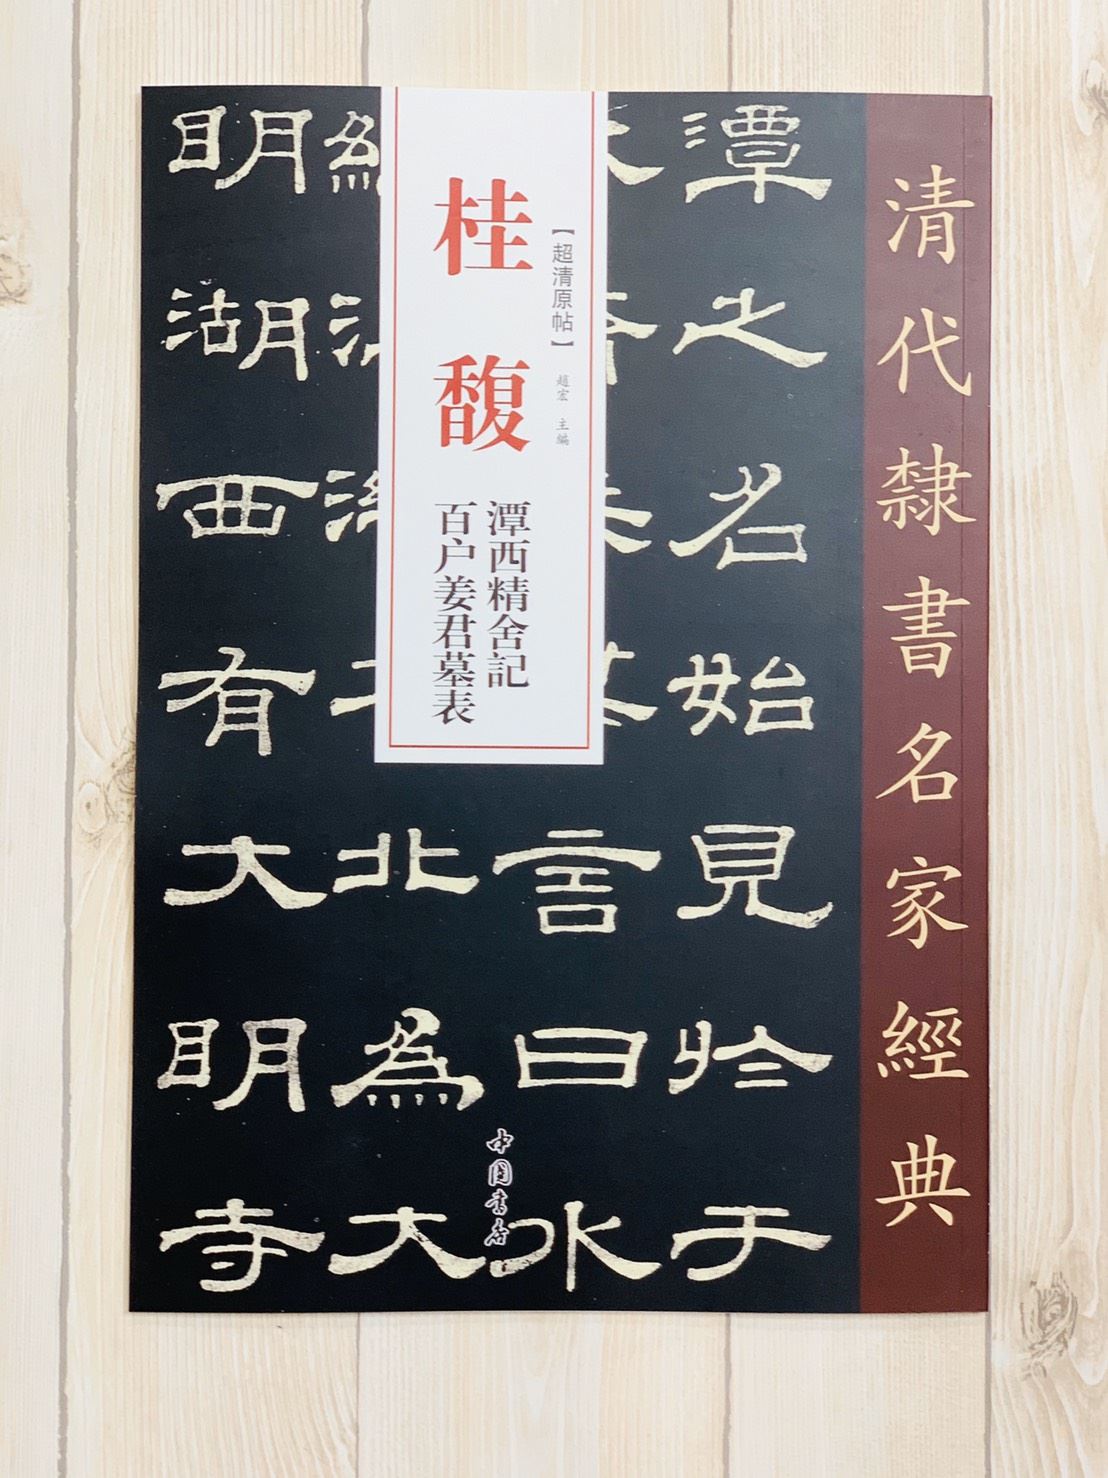 清代隸書名家經典
桂馥
【超清原帖】
趙宏 主編
潭西精舍記
百户姜君墓表
潭之名始見於于
言曰水
北為大
明湖西有大明寺
中国书店